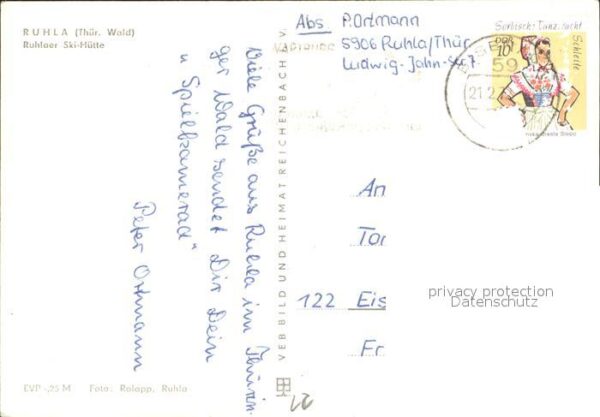 RUHLA (Thür. Wald)
Ruhlaer Ski-Hütte
Viele Grüße aus Ruhla im Thürin-
ger Wald sendet Dir Dein
"Spielkamerad"
Peter Ortmann
EVP -,25 M Foto: Ralapp, Ruhla
VEB BILD UND HEIMAT REICHENBACH i. V.
Abs. P. Ortmann
5906 Ruhla/Thür.
Ludwig-Jahn-Str. 7
Sorbische Tanztracht
Schleife
DDR
10
59
21.2.7
An
122 Eis
Fr
privacy protection
Datenschutz